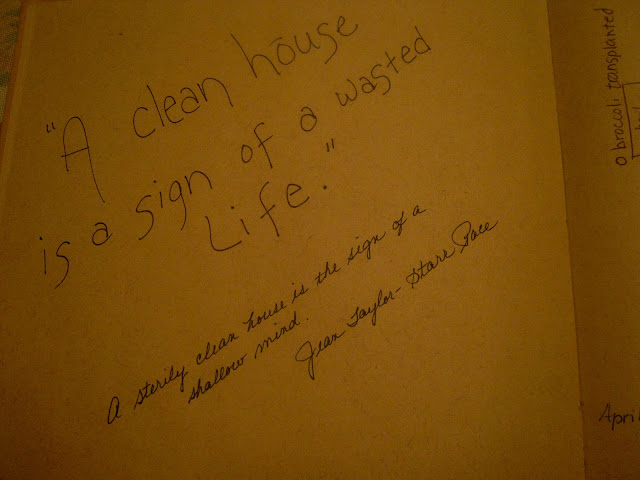 "A clean house
is a sign of a wasted
Life."
A sterily clean house is the sign of a
shallow mind.
Jean Taylor-Starr Pace
o broccoli transplanted
April